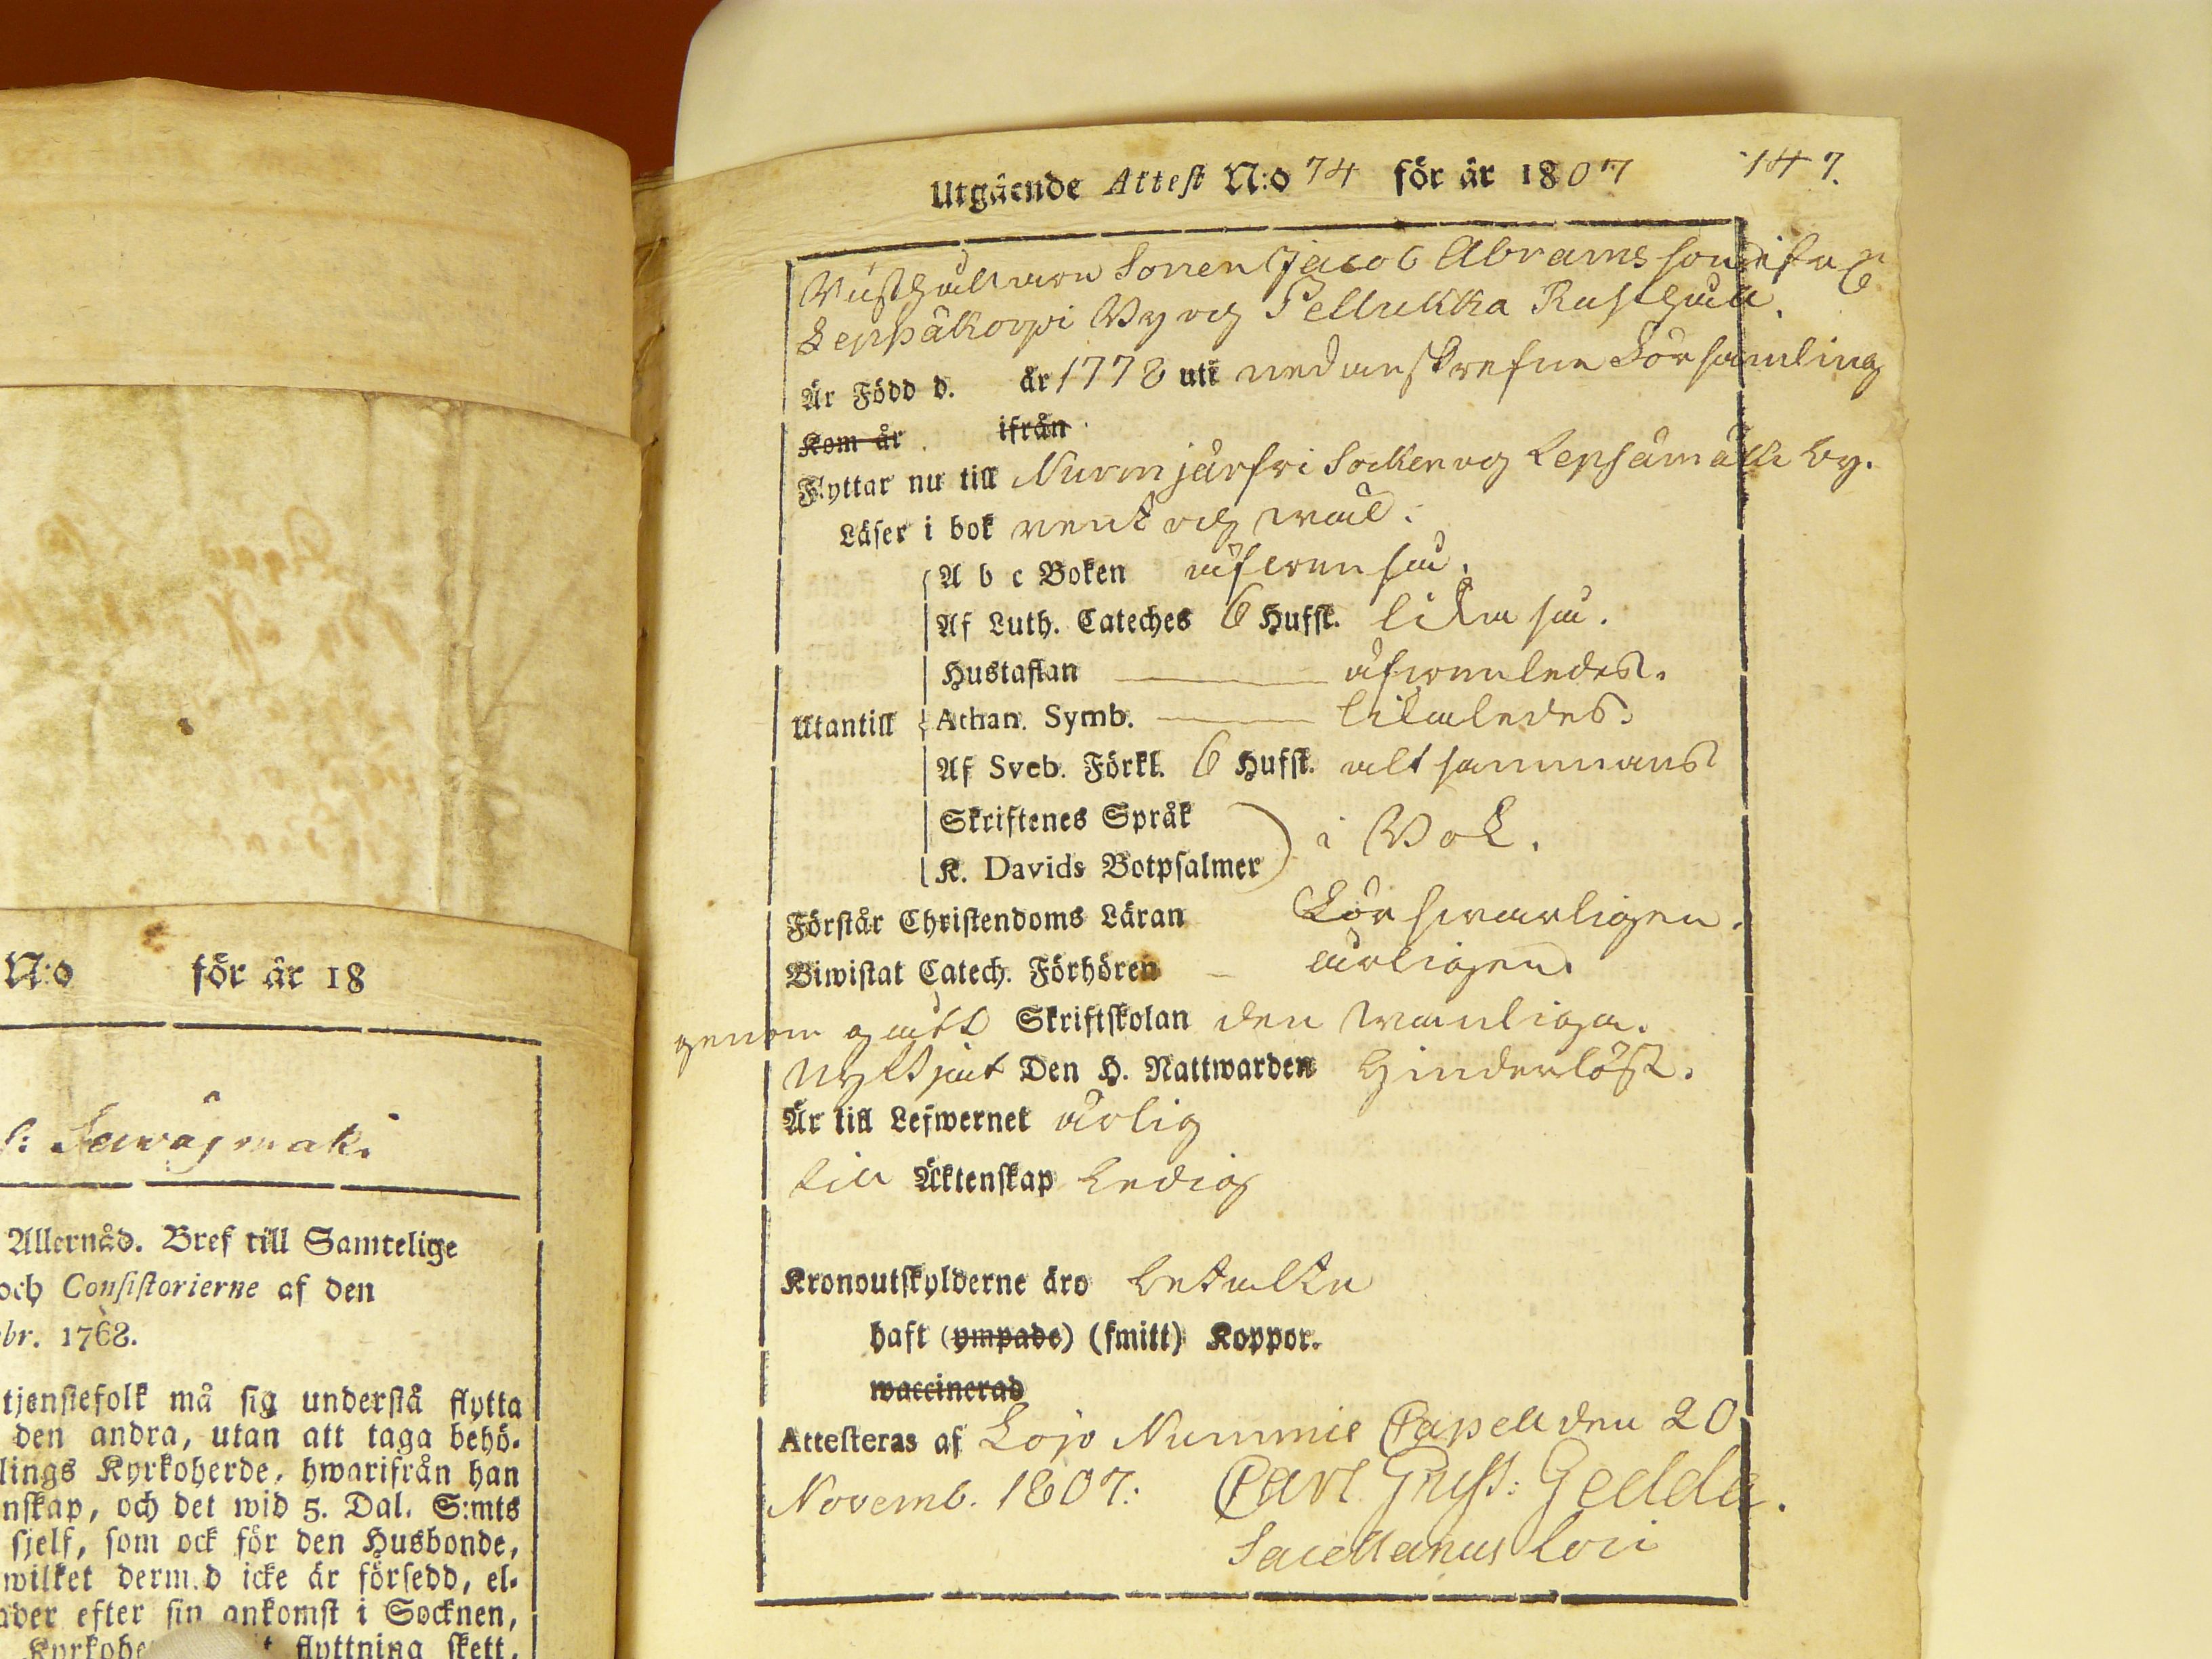 N:o för år 18
Sawäjmaki
Allernåd. Bref till Samtelige
och Consistorierne af den
br. 1768.
tjenstefolk må sig understå flytta
den andra, utan att taga behö-
lings Kyrkoherde, hwarifrån han
nskap, och det wid 5. Dal. S:mts
sjelf, som ock för den Husbonde,
wilket derm.d icke är försedd, el-
ader efter sin ankomst i Socknen,
flyttning skett,
147.
Utgående Attest N:o 74 för år 1807
Rusthållaren Sonen Jacob Abramsson ifrån
Leppäkorpi By och Pellukka Rusthåll.
Är Född d. år 1778 uti nedanskrefne Församling
Kom år ifrån
Flyttar nu till Nurmjärfvi Socken och Lepsämä by.
Läser i bok rent och wäl.
A b c Boken äfwen så.
Af Luth. Cateches 6 Hufst. lika så.
Hustaflan äfwenledes.
Utantill Athan. Symb. likaledes.
Af Sveb. Förkl. 6 Hufst. altsammans
Skriftenes Språk
K. Davids Botpsalmer i Bok.
Förstår Christendoms Läran Försvarligen.
Biwistat Catech. Förhören årligen.
genom gått Skriftskolan den wanliga.
Nyttjat Den H. Nattwarden hinderlöst.
Är till Lefwernet ärlig
till Äktenskap Ledig
Kronoutskylderne äro betalte
haft (ympade) (smitt) Koppor.
waccinerad
Attesteras af Lojo Nummis Capell den 20
Novemb. 1807. Carl Gust: Gedda.
Sacellanus Loci